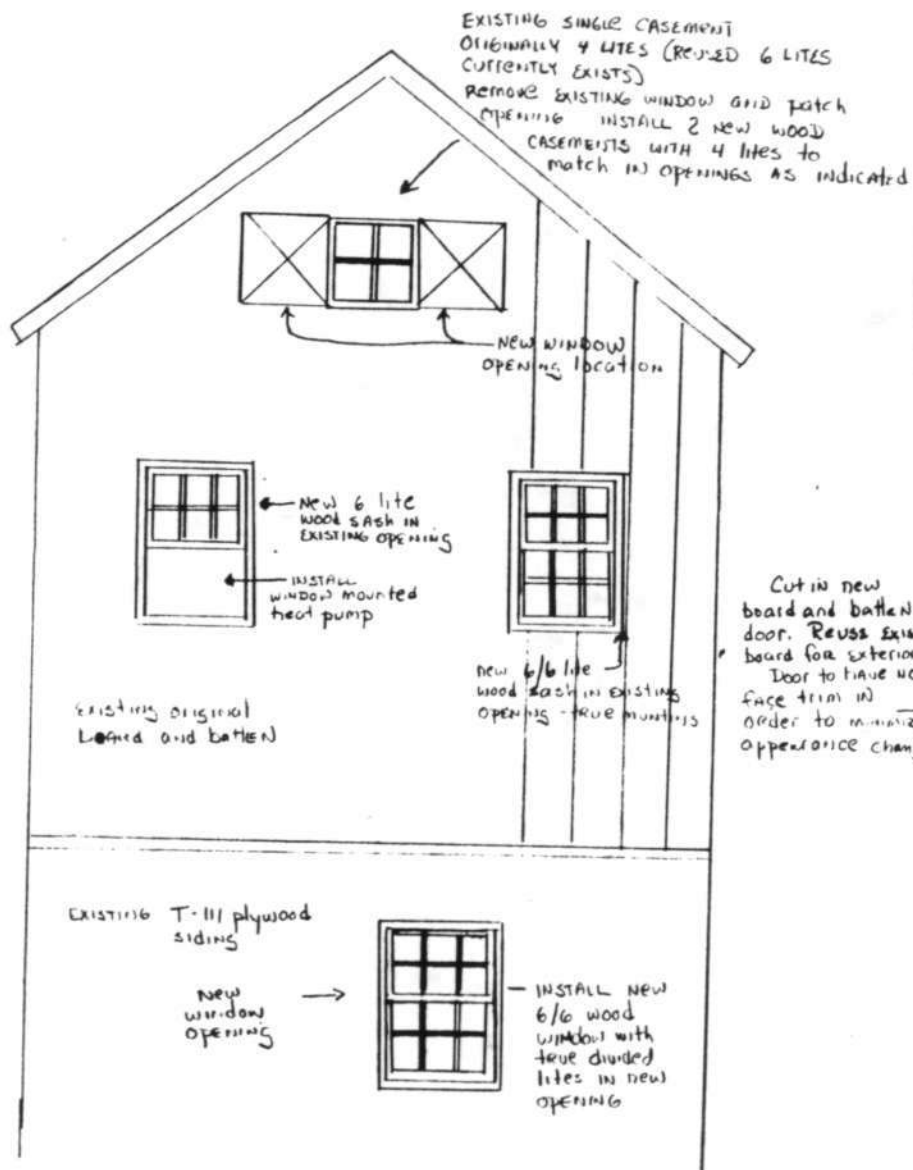 EXISTING SINGLE CASEMENT
ORIGINALLY 4 LITES (REUSED 6 LITES
CURRENTLY EXISTS)
Remove EXISTING WINDOW and patch
OPENING INSTALL 2 NEW WOOD
CASEMENTS WITH 4 lites to
match IN OPENINGS AS INDICATED
NEW WINDOW
OPENING location
New 6 lite
WOOD SASH IN
EXISTING OPENING
INSTALL
WINDOW mounted
heat pump
new 6/6 lite
wood sash in EXISTING
OPENING - true muntins
Existing original
Board and batten
Cut in new
board and batten
door. Reuse EXIS
board for exterior
Door to have no
face trim IN
order to minimiz
appearance chan
EXISTING T-111 plywood
SIDING
New
window
OPENING
INSTALL NEW
6/6 wood
window with
true divided
lites in new
OPENING